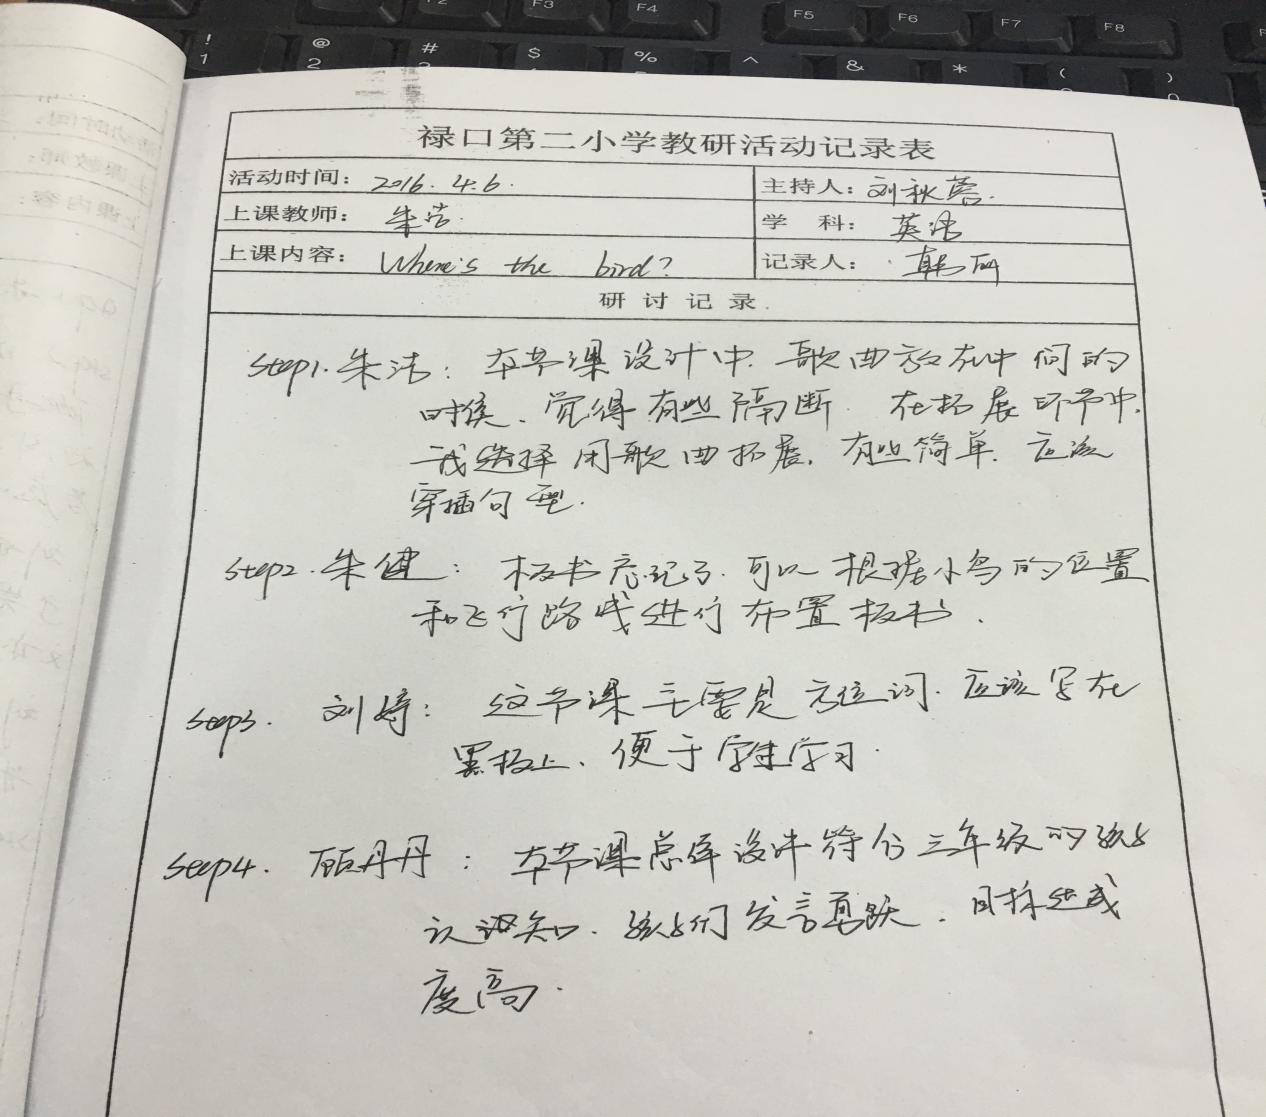 禄口第二小学教研活动记录表
活动时间: 2016.4.6.
主持人: 刘秋蓉.
上课教师: 朱洁.
学 科: 英语
上课内容: Where's the bird?
记录人: 韩丽
研 讨 记 录
Step1. 朱洁: 本节课设计中, 歌曲放在中间的
时候、觉得有些隔断. 在拓展环节中,
我选择用歌曲拓展, 有些简单. 应该
穿插句型.
Step2. 朱健: 板书忘记了. 可以根据小鸟的位置
和飞行路线进行布置板书.
Step3. 刘婷: 这节课主要是方位词. 应该写在
黑板上、便于学生学习.
Step4. 顾丹丹: 本节课总体设计符合三年级的孩子
认识知. 孩子们发言勇跃. 目标达成
度高.